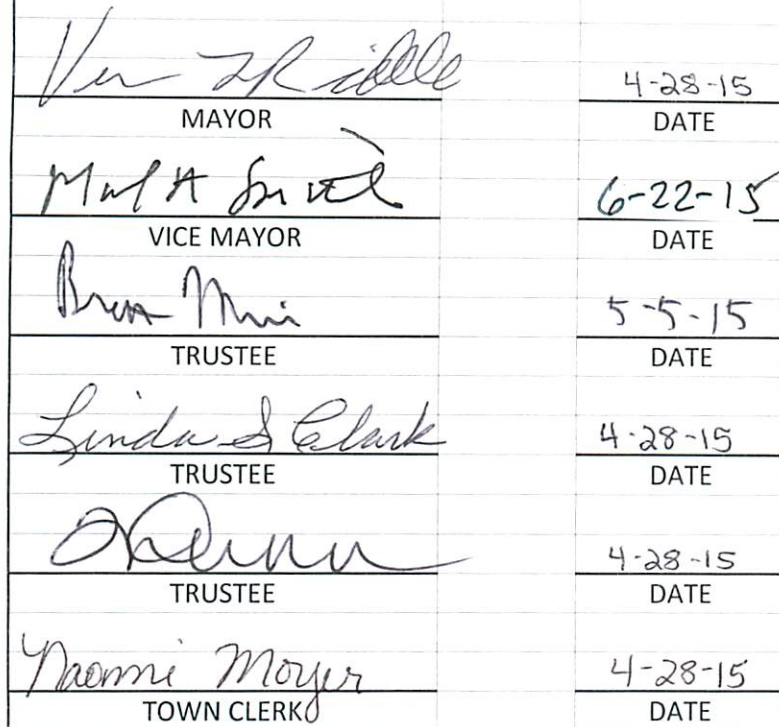 4-28-15
MAYOR DATE
Smith 6-22-15
VICE MAYOR DATE
5-5-15
TRUSTEE DATE
Linda S Clark 4-28-15
TRUSTEE DATE
4-28-15
TRUSTEE DATE
Naomi Moyer 4-28-15
TOWN CLERK DATE